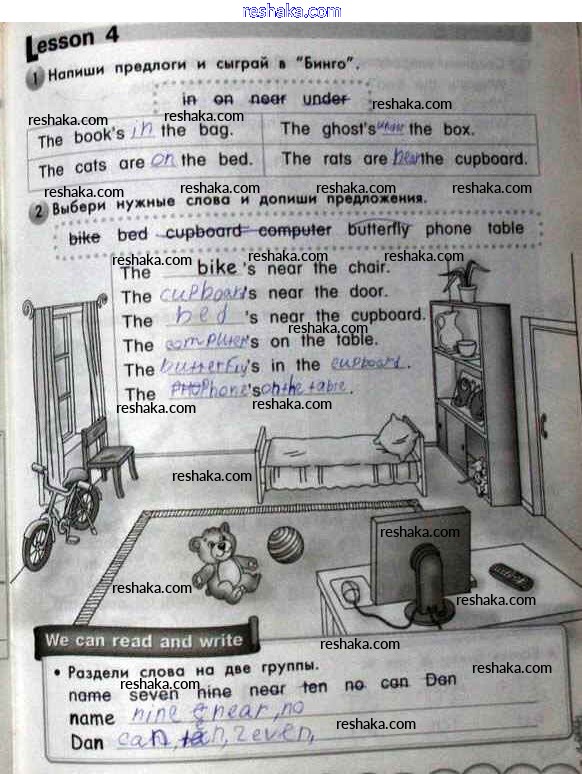 reshaka.com
Lesson 4
1 Напиши предлоги и сыграй в "Бинго".
reshaka.com
reshaka.com
in on near under
reshaka.com
reshaka.com
The book's in the bag. The ghost's under the box.
The cats are on the bed. The rats are near the cupboard.
reshaka.com reshaka.com reshaka.com
2 Выбери нужные слова и допиши предложения.
bike bed cupboard computer butterfly phone table
The bike's near the chair.
reshaka.com reshaka.com reshaka.com
The cupboard's near the door.
The bed's near the cupboard.
reshaka.com
The computer's on the table.
The butterfly's in the cupboard.
The phone's on the table.
reshaka.com reshaka.com
reshaka.com
reshaka.com
reshaka.com
reshaka.com
reshaka.com
We can read and write
• Раздели слова на две группы.
reshaka.com
reshaka.com
name seven nine near ten no can Dan
name nine near, no
reshaka.com
Dan can, ten, zeven,
reshaka.com